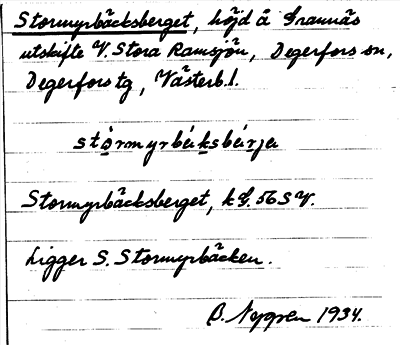 Stormyrbäcksberget, höjd å Grannäs
utskifte V. Stora Ramsjön, Degerfors sn,
Degerfors tg, Västerb. l.
stȯrmyrbäksbärja
Stormyrbäcksberget, k G. 56 S V.
Ligger S. Stormyrbäcken.
B. Nygren 1934.